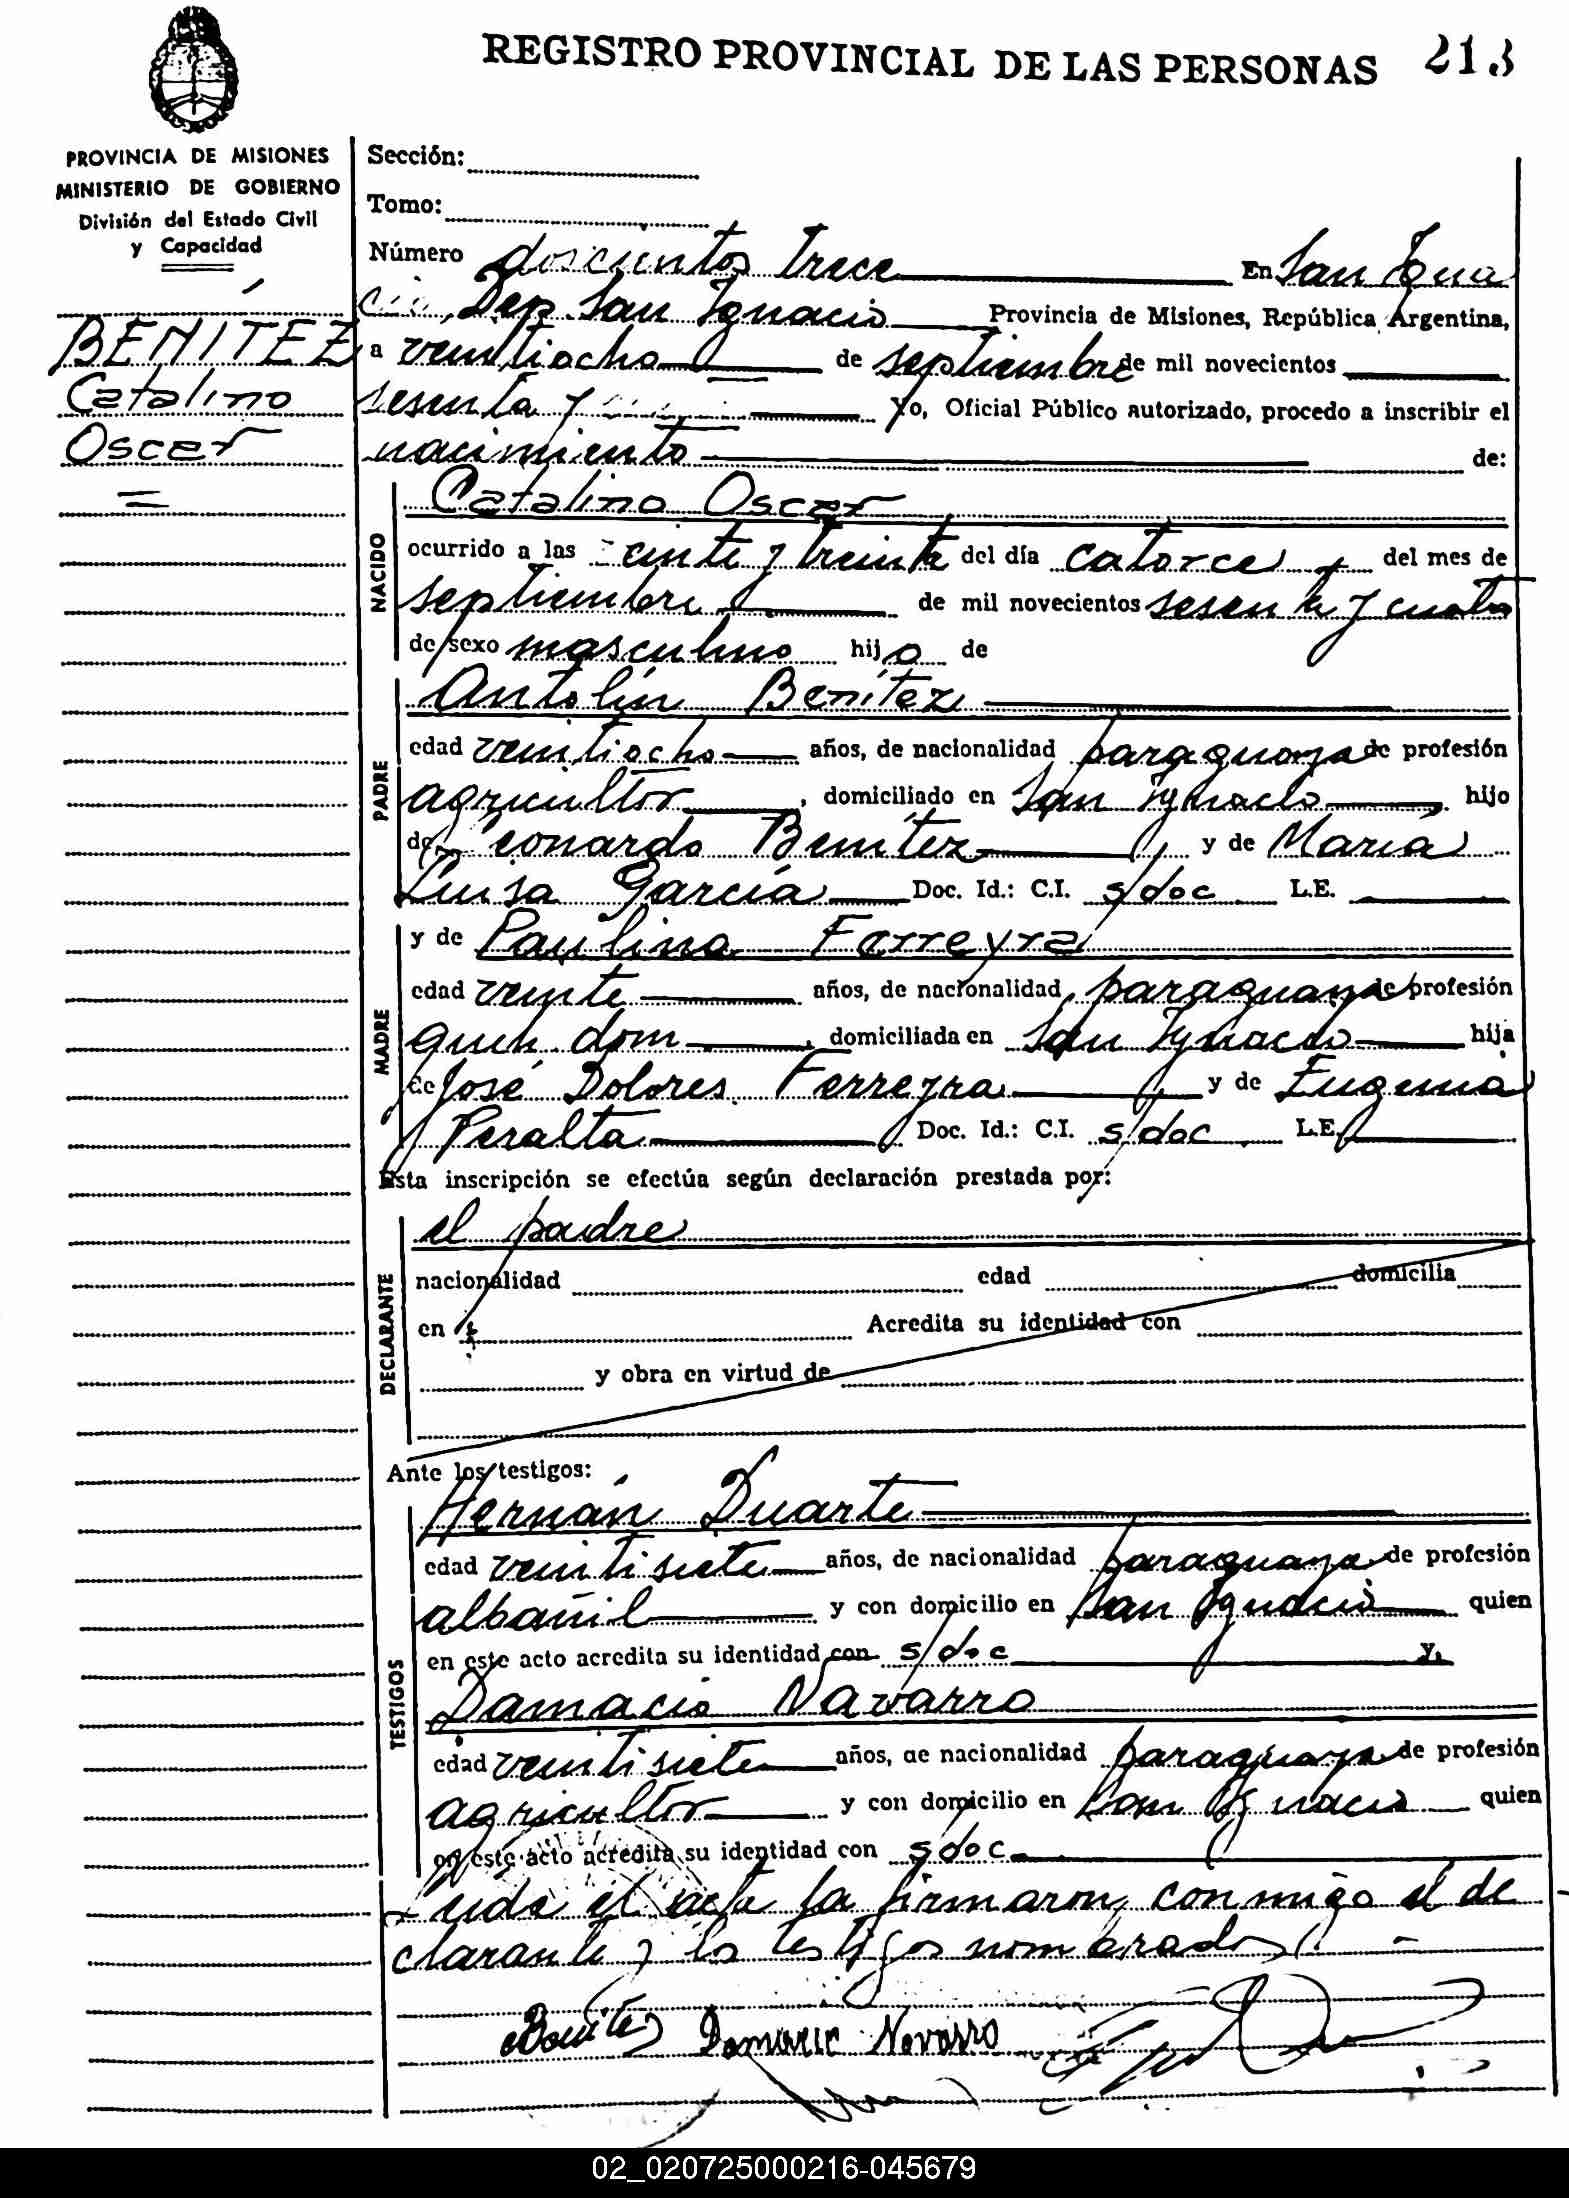 REGISTRO PROVINCIAL DE LAS PERSONAS 213
PROVINCIA DE MISIONES
MINISTERIO DE GOBIERNO
División del Estado Civil
y Capacidad
BENÍTEZ
Catalino
Oscar
Sección:
Tomo:
Número doscientos trece En San Igna
cio, Dep. San Ignacio Provincia de Misiones, República Argentina,
a veintiocho de septiembre de mil novecientos
sesenta y Yo, Oficial Público autorizado, procedo a inscribir el
nacimiento de:
NACIDO
Catalino Oscar
ocurrido a las veinte y treinta del día catorce del mes de
septiembre de mil novecientos sesenta y cuatro
de sexo masculino hijo de
PADRE
Antolín Benítez
edad veintiocho años, de nacionalidad paraguaya de profesión
agricultor, domiciliado en San Ignacio hijo
de Leonardo Benítez y de María
Luisa García Doc. Id.: C.I. s/doc L.E.
MADRE
y de Paulina Ferreyra
edad veinte años, de nacionalidad paraguaya de profesión
queh. dom, domiciliada en San Ignacio hija
de José Dolores Ferreyra y de Eugenia
Peralta Doc. Id.: C.I. s/doc. L.E.
Esta inscripción se efectúa según declaración prestada por:
DECLARANTE
el padre
nacionalidad edad domicilia
en Acredita su identidad con
y obra en virtud de
Ante los testigos:
TESTIGOS
Hernán Duarte
edad veintisiete años, de nacionalidad paraguaya de profesión
albañil y con domicilio en San Ignacio quien
en este acto acredita su identidad con s/doc y,
Damacio Navarro
edad veintisiete años, de nacionalidad paraguaya de profesión
agricultor y con domicilio en San Ignacio quien
en este acto acredita su identidad con s/doc
Leída el acta la firmaron conmigo el de
clarante y los testigos nombrados.
Benitez Damacio Navarro
02_020725000216-045679